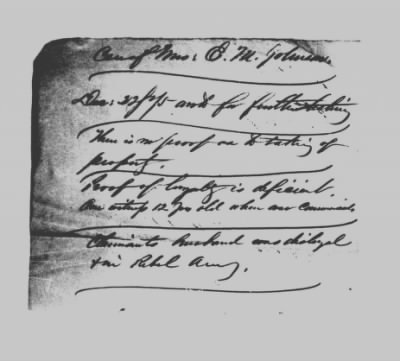 Case of Mrs: E. M. Johnson.
Dec: 22/75 and for further
There is no proof as to taking of
property.
Proof of loyalty is deficient.
One witness 12 yrs old when war commenced.
Claimants husband was disloyal
& in Rebel Army.